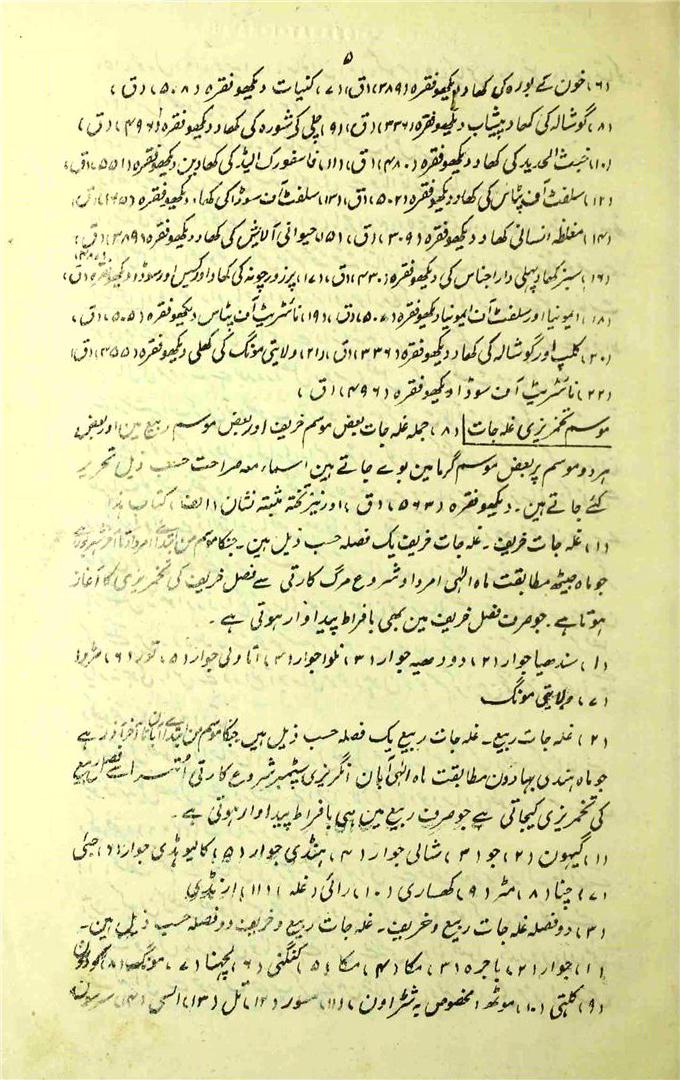 ۵
(۶) خون کے بورہ کی کھاد دیکھو فقرہ (۳۸۹) (ق) (۷) کنیات دیکھو فقرہ (۵۰۸) (ق)
(۸) گوشالہ کی کھاد پیشاب دیکھو فقرہ (۳۳۶) (ق) (۹) چلی کر شورہ کی کھاد دیکھو فقرہ (۴۹۶) (ق)
(۱۰) خبث الحدید کی کھاد دیکھو فقرہ (۴۸۰) (ق) (۱۱) فاسفورک ایسڈ کی کھادین دیکھو فقرہ (۵۵۱) (ق)
(۱۲) سلفٹ آف پٹاس کی کھاد دیکھو فقرہ (۵۰۲) (ق) (۱۳) سلفٹ آف سوڈا کی کھاد دیکھو فقرہ (ق)
(۱۴) مغلظہ انسانی کھاد دیکھو فقرہ (۳۰۹) (ق) (۱۵) حیوانی آلایش کی کھاد دیکھو فقرہ (۳۸۹) (ق)
(۱۶) سبز کھاد پھلی دار اجناس کی دیکھو فقرہ (۴۳۰) (ق) (۱۷) پرزور چونہ کی کھاد اور کیس اور سوڈا دیکھو فقرہ (ق)
(۱۸) ایمونیا اور سلفٹ آف ایمونیا دیکھو فقرہ (۵۰۷) (ق) (۱۹) نائٹریٹ آف پٹاس دیکھو فقرہ (۵۰۵) (ق)
(۲۰) کلپ اور گوشالہ کی کھاد دیکھو فقرہ (۳۳۶) (ق) (۲۱) ولایتی مونگ کی کھلی دیکھو فقرہ (۳۵۵) (ق)
(۲۲) نائٹریٹ آف سوڈا دیکھو فقرہ (۴۹۶) (ق)
موسم تخمریزی غلہ جات (۸) جملہ غلہ جات بعض موسم خریف اور بعض موسم ربیع مین اور بعض
ہر دو موسم پر بعض موسم گرما مین بوے جاتے ہین اسماء معہ صراحت حسب ذیل تحریر
کئے جاتے ہین۔ دیکھو فقرہ (۵۶۳) (ق) اور نیز تختہ مثبتہ نشان (الف) کتاب ہذا
(۱) غلہ جات خریف۔ غلہ جات خریف یک فصلہ حسب ذیل ہین۔ جنکا موسم من ابتداے امرداد تا آخر شہریور ہے
جو ماہ جیٹھ مطابقت ماہ الٰہی امرداد شروع مرگ کارتی سے فصل خریف کی تخمریزی کا آغاز
ہوتا ہے۔ جو صرف فصل خریف مین بھی بافراط پیداوار ہوتی ہے۔
(۱) سندھیا جوار (۲) دودھیہ جوار (۳) نلوا جوار (۴) آتاولی جوار (۵) تور (۶)
(۷) ولایتی مونگ
(۲) غلہ جات ربیع۔ غلہ جات ربیع یک فصلہ حسب ذیل ہیں جنکا موسم من ابتداے آبان تا آخر آذر ہے
جو ماہ ہندی بھادون مطابقت ماہ الٰہی آبان انگریزی سپٹمبر شروع کارتی اُترا سے فصل ربیع
کی تخمریزی کیجاتی ہے جو صرف ربیع مین ہی بافراط پیداوار ہوتی ہے۔
(۱) گیہون (۲) جو (۳) شالی جوار (۴) ہنڈی جوار (۵) کالبونڈی جوار (۶)
(۷) چنا (۸) مٹر (۹) کھساری (۱۰) رائی (غلہ) (۱۱) ارنڈی
(۳) دو فصلہ غلہ جات ربیع و خریف۔ غلہ جات ربیع و خریف دو فصلہ حسب ذیل ہین۔
(۱) جوار (۲) باجرہ (۳) مکا (۴) مکا (۵) کنگنی (۶) لچھنا (۷) مونگ (۸)
(۹) کلتی (۱۰) موٹھ (مخصوص بہ شٹراون) (۱۱) مسور (۱۲) تل (۱۳) السی (۱۴) سرسون